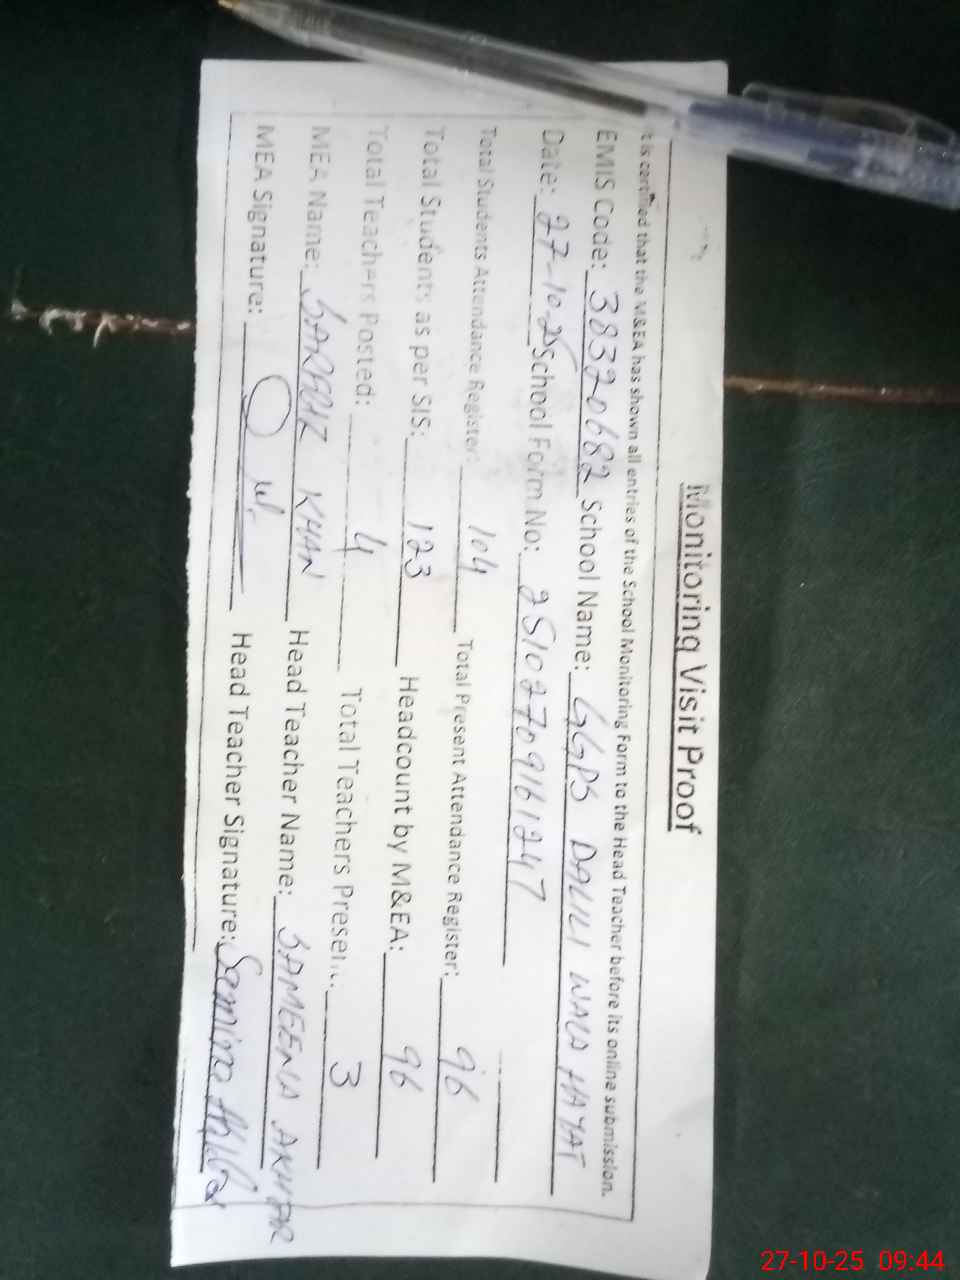 Monitoring Visit Proof
It is certified that the M&EA has shown all entries of the School Monitoring Form to the Head Teacher before its online submission.
EMIS Code: 38320682 School Name: GGPS DALILI WALA HAYAT
Date: 27-10-25 School Form No: 25102709161247
Total Students Attendance Register: 104 Total Present Attendance Register: 96
Total Students as per SIS: 123 Headcount by M&EA: 96
Total Teachers Posted: 4 Total Teachers Present: 3
MEA Name: KHAN Head Teacher Name: SAMEENA
MEA Signature: Head Teacher Signature: Samina
27-10-25 09:44